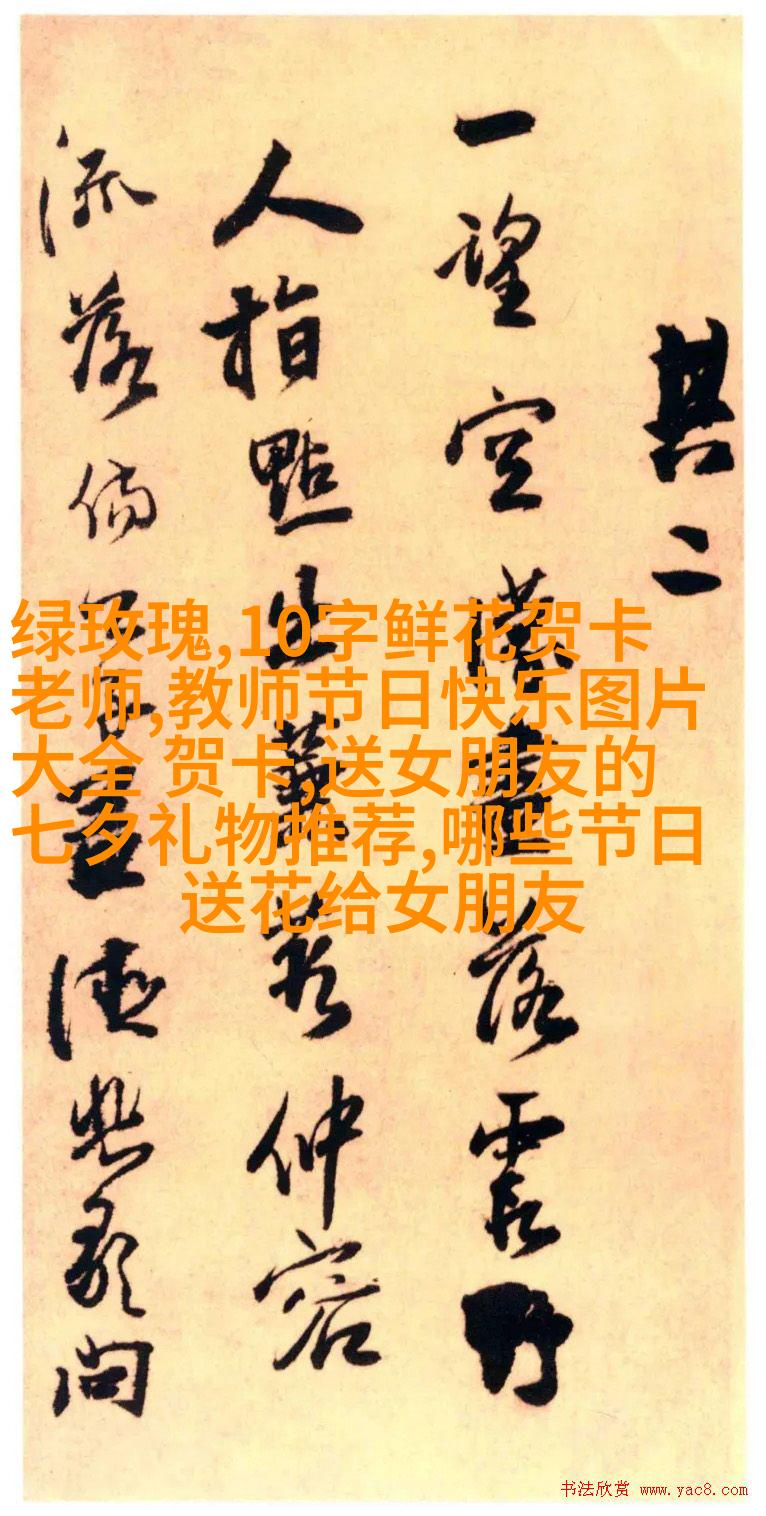 其二
一望空濛盡落霞野
人指點出叢若仲容
流落倘
德與歌尚
绿玫瑰,10字鲜花贺卡
老师,教师节日快乐图片
大全 贺卡,送女朋友的
七夕礼物推荐,哪些节日
送花给女朋友
书法欣赏 www.yac8.com